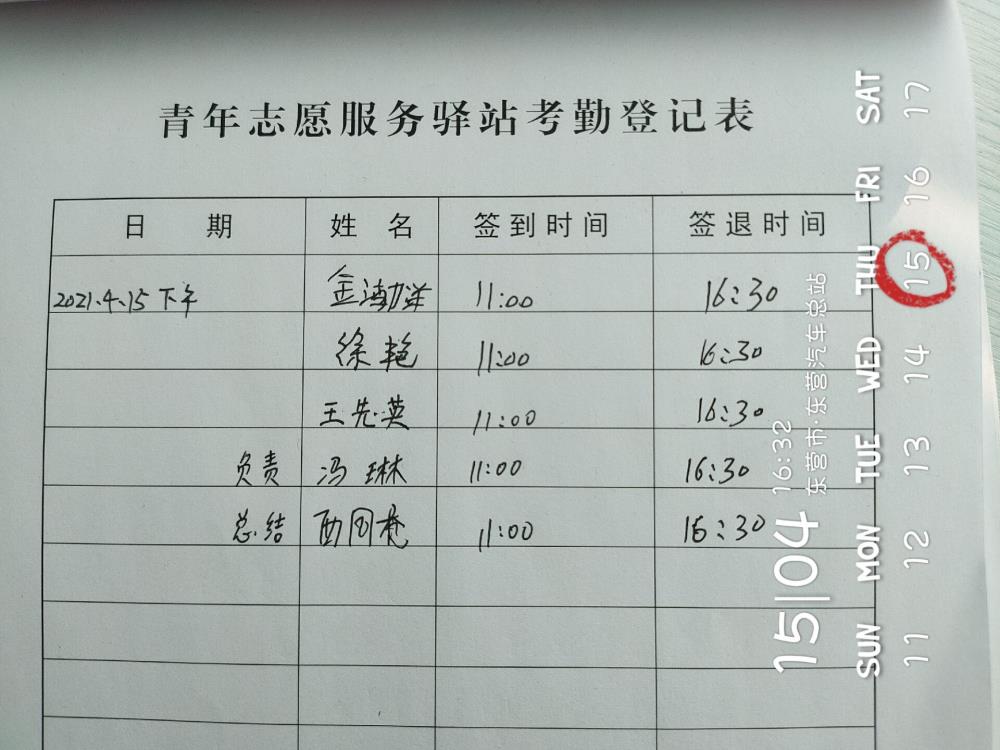 青年志愿服务驿站考勤登记表
日 期 姓 名 签到时间 签退时间
2021.4.15 下午 金渤洋 11:00 16:30
徐艳 11:00 16:30
王先英 11:00 16:30
负责 冯琳 11:00 16:30
总结 11:00 16:30
15|04 16:32
东营市·东营汽车总站
SUN MON TUE WED THU FRI SAT
11 12 13 14 15 16 17